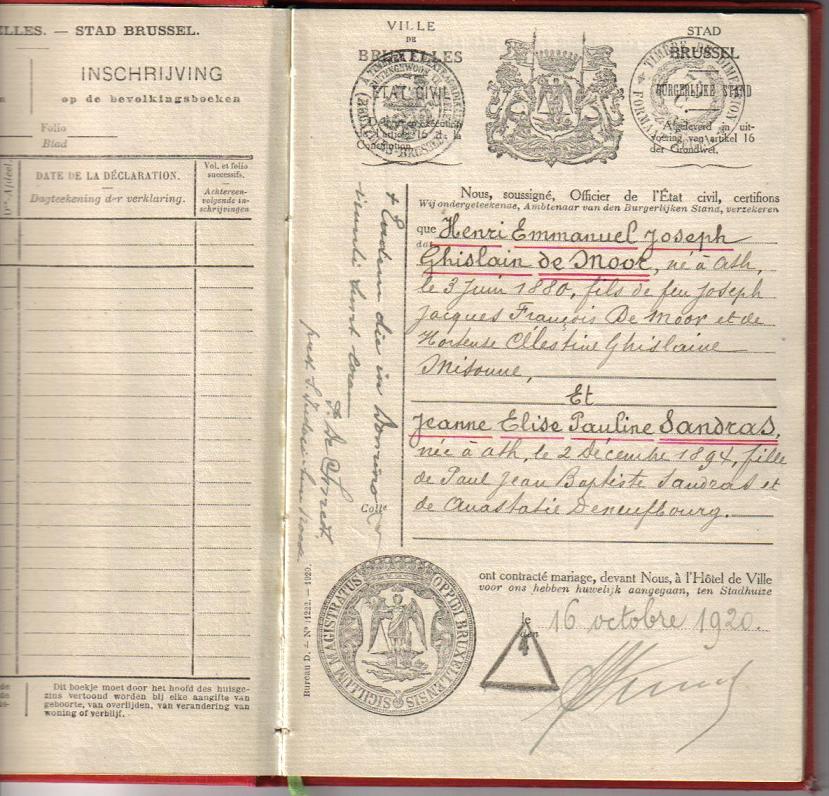 ELLES. — STAD BRUSSEL.
INSCHRIJVING
op de bevolkingsboeken
Folio
Blad
DATE DE LA DÉCLARATION.
Dagteekening der verklaring.
Vol. et folio
successifs.
Achtereen-
volgende in-
schrijvingen
Dit boekje moet door het hoofd des huisge-
zins vertoond worden bij elke aangifte van
geboorte, van overlijden, van verandering van
woning of verblijf.
VILLE
DE
BRUXELLES
ÉTAT CIVIL
l'article 16 de la
STAD
BRUSSEL
BURGERLIJKE STAND
Afgeleverd in uit-
voering van artikel 16
der Grondwet.
Nous, soussigné, Officier de l'État civil, certifions
Wij ondergeteekende, Ambtenaar van den Burgerlijken Stand, verzekeren
que Henri Emmanuel Joseph
dat
Ghislain de Moor, né à Ath,
le 3 Juin 1880, fils de feu Joseph
Jacques François De Moor et de
Hortense Célestine Ghislaine
Misonne,
Et
Jeanne Elise Pauline Sandras,
née à Ath, le 2 Décembre 1894, fille
de Paul Jean Baptiste Sandras et
de Anastasie Deneufbourg.
ont contracté mariage, devant Nous, à l'Hôtel de Ville
voor ons hebben huwelijk aangegaan, ten Stadhuize
le 16 octobre 1920.
den
+ Eadem die in Domino
coram
SIGILLUM MAGISTRATUS OPPIDI BRUXELLENSIS
Bureau D. — N° 11222. — 1920.